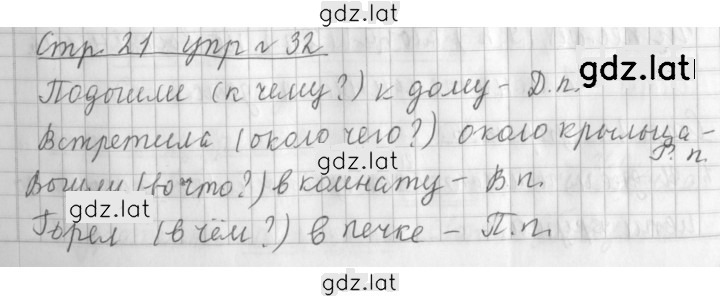 gdz.lat
Стр. 21 упр № 32
gdz.lat
Подошли (к чему?) к дому – Д.п.
Встретила (около чего?) около крыльца – Р.п.
gdz.lat
Вошли (во что?) в комнату – В п.
gdz.lat
Горел (в чём?) в печке – П.п.
gdz.lat